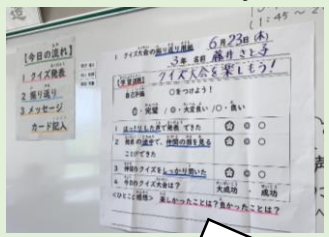 【今日の流れ】
1 クイズ発表
2 振り返り
3 メッセージ
カード記入
1 クイズ大会の振り返り用紙 6月23日(木)
3年 名前 藤井さと子
【学習課題】 クイズ大会を楽しもう!
自己評価 ○をつけよう!
◎・大変良い ○・良い
1 はっきりした声で発表できた ◎ ○
2 仲間の顔を見る
ことができた ◎ ○
3 仲間のクイズをしっかり聞いた ◎ ○
4 今日のクイズ大会は? 大成功 ・ 成功
<ひとこと感想> 楽しかったことは?良かったことは?